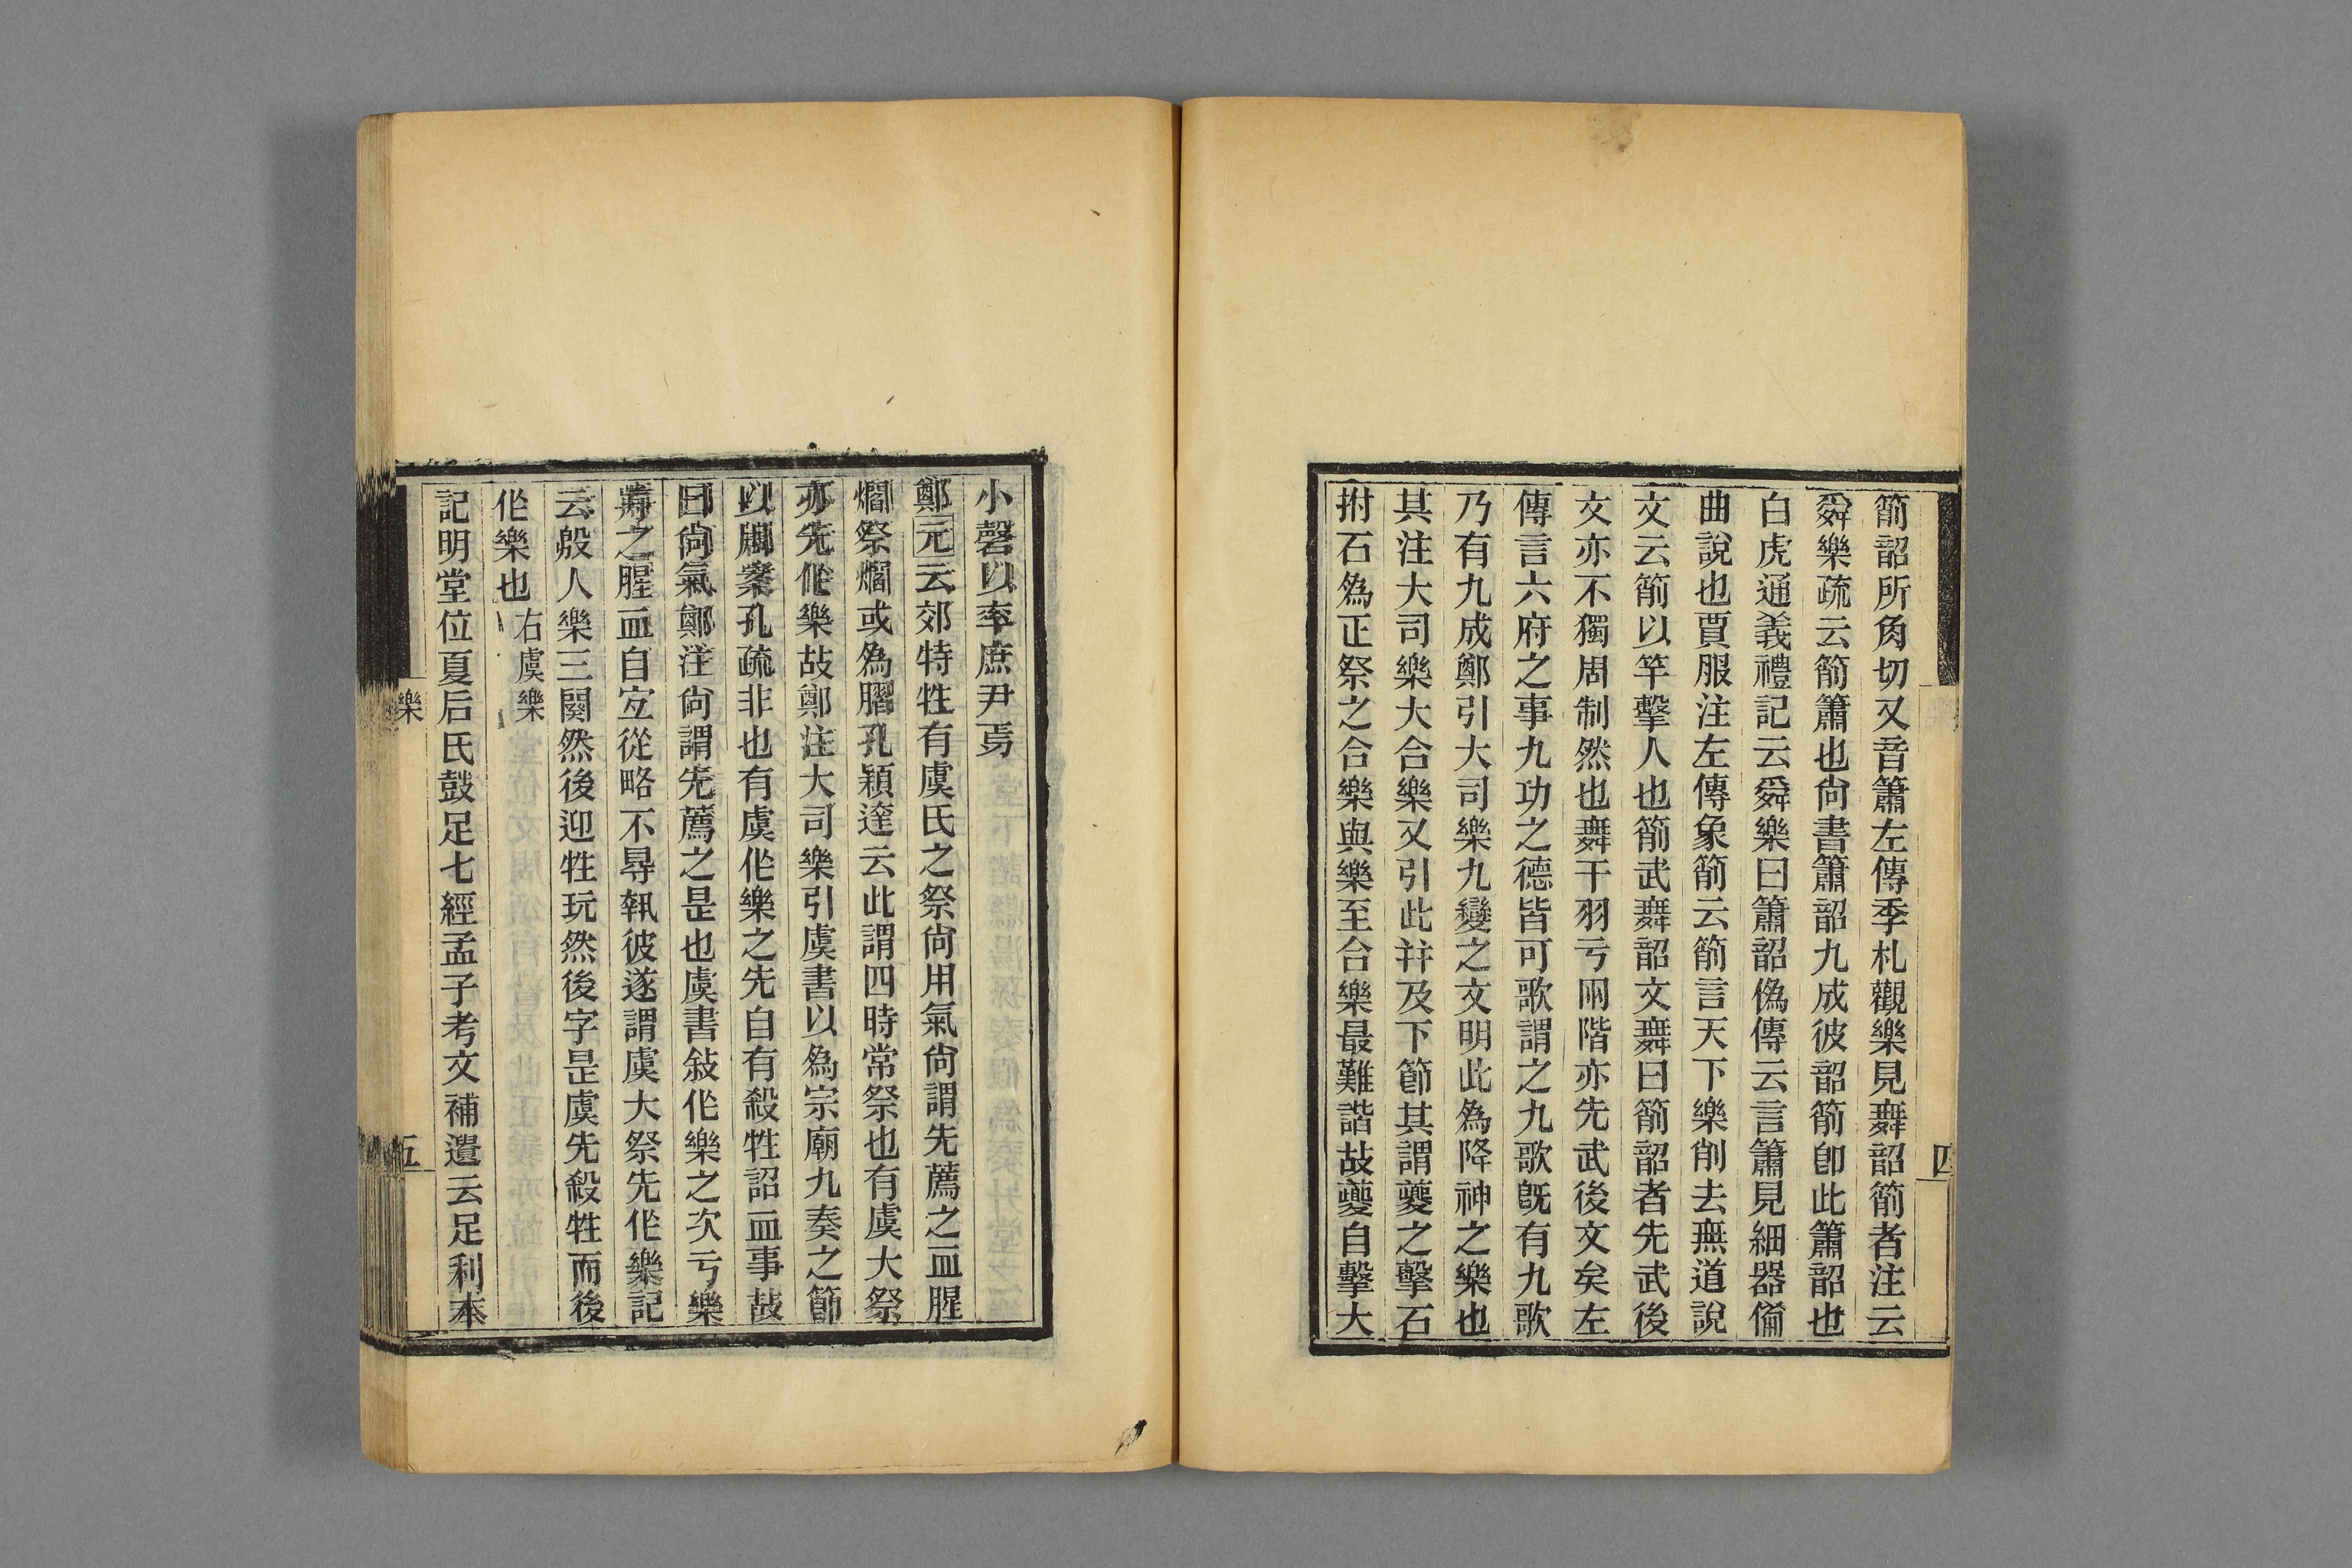 箾韶所角切又音簫左傳季札觀樂見舞韶箾者注云
舜樂疏云箾簫也尙書簫韶九成彼韶箾卽此簫韶也
白虎通義禮記云舜樂曰簫韶僞傳云言簫見細器僃
曲說也賈服注左傳象箾云箾言天下樂削去無道說
文云箾以竿擊人也箾武舞韶文舞曰箾韶者先武後
文亦不獨周制然也舞干羽亏兩階亦先武後文矣左
傳言六府之事九功之德皆可歌謂之九歌旣有九歌
乃有九成鄭引大司樂九變之文明此爲降神之樂也
其注大司樂大合樂又引此幷及下節其謂夔之擊石
拊石爲正祭之合樂與樂至合樂最難諧故夔自擊大
四
小磬以率庶尹焉
鄭元云郊特牲有虞氏之祭尙用氣尙謂先薦之血腥
爓祭爓或爲膶孔穎達云此謂四時常祭也有虞大祭
亦先作樂故鄭注大司樂引虞書以爲宗廟九奏之節
以𨵿案孔疏非也有虞作樂之先自有殺牲詔血事故
曰尙氣鄭注尙謂先薦之是也虞書敍作樂之次亏樂
薦之腥血自宐從略不尋執彼遂謂虞大祭先作樂記
云殷人樂三闋然後迎牲玩然後字是虞先殺牲而後
作樂也 右虞樂
記明堂位夏后氏鼓足七經孟子考文補遺云足利本
樂
五